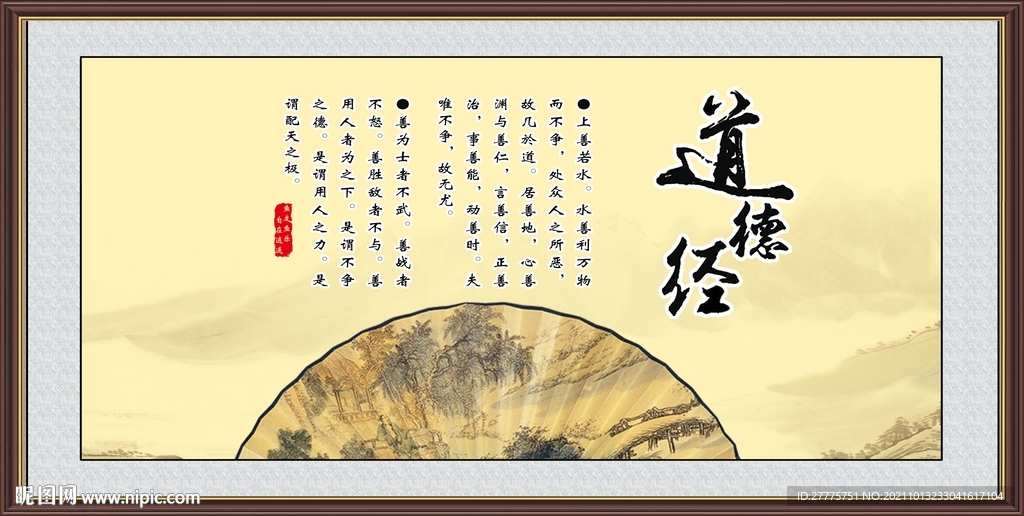 道德经
●上善若水。水善利万物
而不争，处众人之所恶，
故几於道。居善地，心善
渊与善仁，言善信，正善
治，事善能，动善时。夫
唯不争，故无尤。
●善为士者不武。善战者
不怒。善胜敌者不与。善
用人者为之下。是谓不争
之德。是谓用人之力。是
谓配天之极。
自在逍遥
昵图网 www.nipic.com
ID:27775751 NO:20211013233041617104